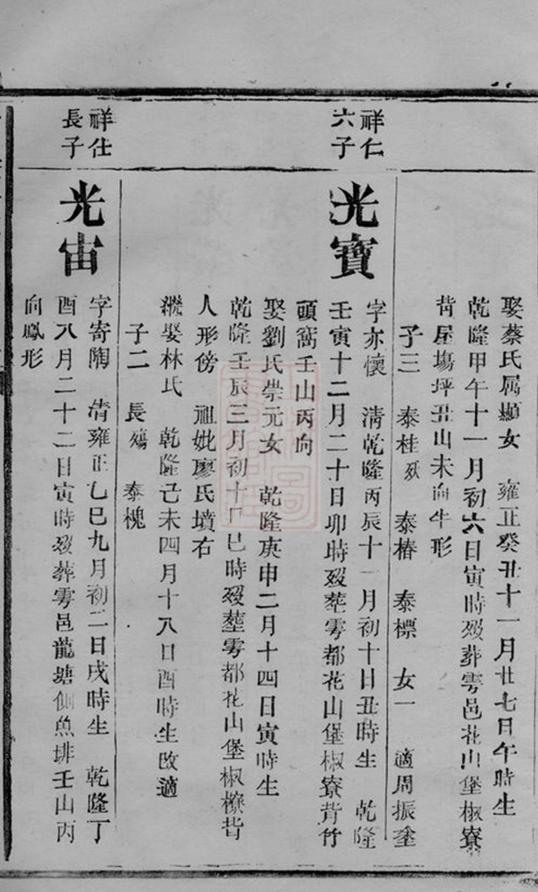 娶蔡氏属顯女 雍正癸丑十一月廿七日午時生
乾隆甲午十一月初六日寅時殁葬雩邑花山堡椒寮
背屋塲坪丑山未向牛形
子三 泰桂殀 泰椿 泰標 女一 適周振塗
祥仁
六子
光寶
字亦懷 清乾隆丙辰十一月初十日丑時生 乾隆
壬寅十二月二十日卯時殁塟雩都花山堡椒寮背竹
頭窩壬山丙向
娶劉氏崇元女 乾隆庚申二月十四日寅時生
乾隆壬辰三月初十日巳時殁塟雩都花山堡椒橑背
人形傍 祖妣廖氏墳右
娶林氏 乾隆己未四月十八日酉時生改適
子二 長殤 泰槐
祥仕
長子
光宙
字寄陶 清雍正乙巳九月初二日戌時生 乾隆丁
酉八月二十二日寅時殁葬雩邑龍塘側魚排壬山丙
向鳳形